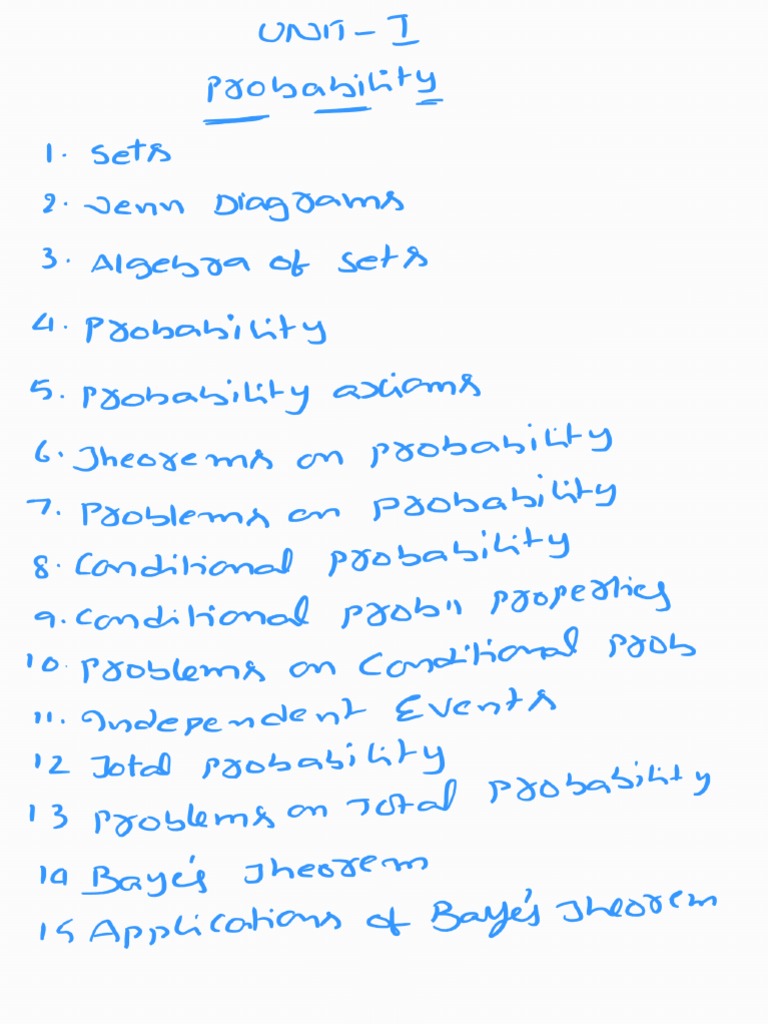 UNIT - I
Probability
1. Sets
2. Venn Diagrams
3. Algebra of Sets
4. Probability
5. Probability axioms
6. Theorems on probability
7. Problems on probability
8. Conditional probability
9. Conditional prob" properties
10. Problems on Conditional prob
11. Independent Events
12 Total probability
13 problems on Total probability
14 Baye's Theorem
15 Applications of Baye's Theorem